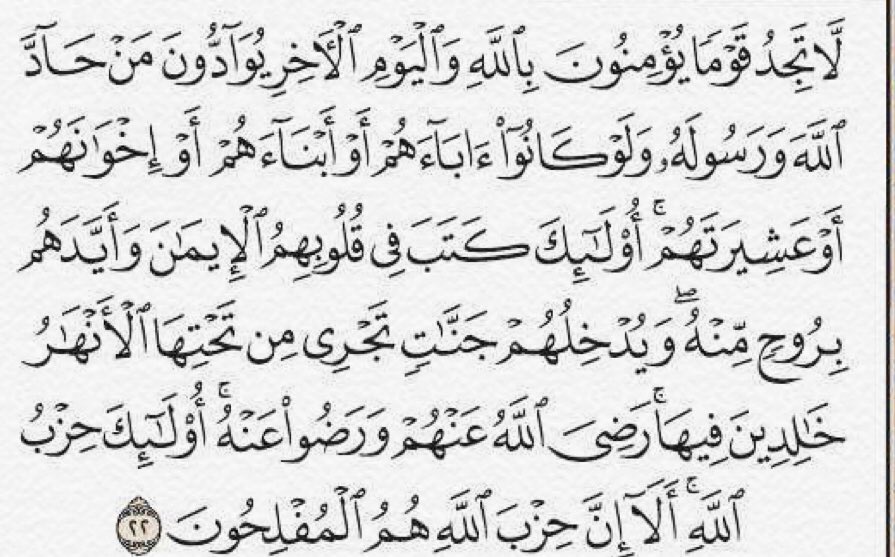 لَّا تَجِدُ قَوْمًا يُؤْمِنُونَ بِٱللَّهِ وَٱلْيَوْمِ ٱلْأَخِرِ يُوَآدُّونَ مَنْ حَآدَّ
ٱللَّهَ وَرَسُولَهُۥ وَلَوْ كَانُوٓا۟ ءَابَآءَهُمْ أَوْ أَبْنَآءَهُمْ أَوْ إِخْوَٰنَهُمْ
أَوْ عَشِيرَتَهُمْ ۚ أُو۟لَٰٓئِكَ كَتَبَ فِى قُلُوبِهِمُ ٱلْإِيمَٰنَ وَأَيَّدَهُم
بِرُوحٍ مِّنْهُ ۖ وَيُدْخِلُهُمْ جَنَّٰتٍ تَجْرِى مِن تَحْتِهَا ٱلْأَنْهَٰرُ
خَٰلِدِينَ فِيهَا ۚ رَضِىَ ٱللَّهُ عَنْهُمْ وَرَضُوا۟ عَنْهُ ۚ أُو۟لَٰٓئِكَ حِزْبُ
ٱللَّهِ ۚ أَلَآ إِنَّ حِزْبَ ٱللَّهِ هُمُ ٱلْمُفْلِحُونَ ٢٢